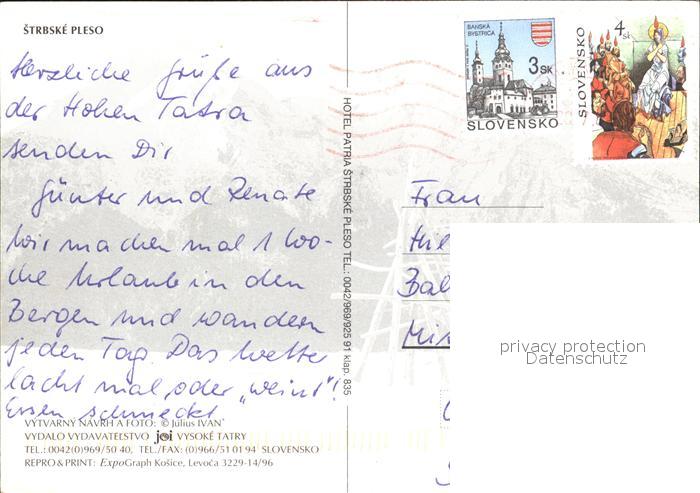 ŠTRBSKÉ PLESO
Herzliche Grüße aus
der Hohen Tatra
senden Dir
Günter und Renate
Wir machen mal 1 Wo-
che Urlaub in den
Bergen und wandern
jeden Tag. Das Wetter
lacht mal, oder „weint"!
Essen schmeckt
VÝTVARNÝ NÁVRH A FOTO: © Július IVAN
VYDALO VYDAVATEĽSTVO joi VYSOKÉ TATRY
TEL.: 0042(0)969/50 40, TEL./FAX: (0)966/51 01 94 SLOVENSKO
REPRO & PRINT: ExpoGraph Košice, Levoča 3229-14/96
HOTEL PATRIA ŠTRBSKÉ PLESO TEL.: 0042/969/925 91 klap. 835
BANSKÁ
BYSTRICA
3 SK
SLOVENSKO
SLOVENSKO
4 SK
Frau
privacy protection
Datenschutz